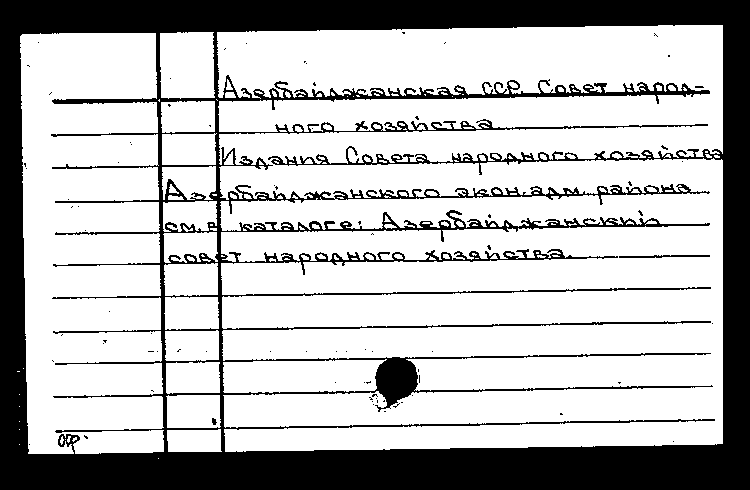 Азербайджанская ССР. Совет народ-
ного хозяйства
Издания Совета народного хозяйства
Азербайджанского экон. адм. района
см. в каталоге: Азербайджанский
совет народного хозяйства.